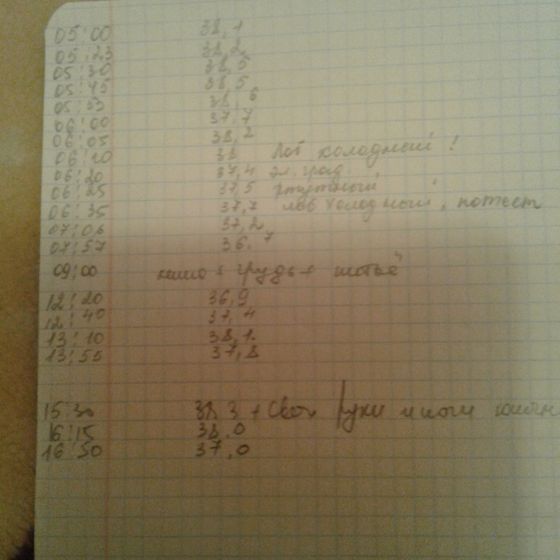 05:00 38,1
05:23 38,2
05:30 38,5
05:45 38,5
05:55 38,6
06:00 37,7
06:05 38,2
06:10 38 Лоб холодный!
06:20 37,4 эл. град.
06:25 37,5 ртутный
06:35 37,7 лоб холодный, потеет
07:06 37,2
07:57 36.7
09:00 грудь + питьё
12:20 36,9
12:40 37,4
13:10 38,1
13:55 37,8
15:30 38,3 + руки и ноги
16:15 38,0
16:50 37,0